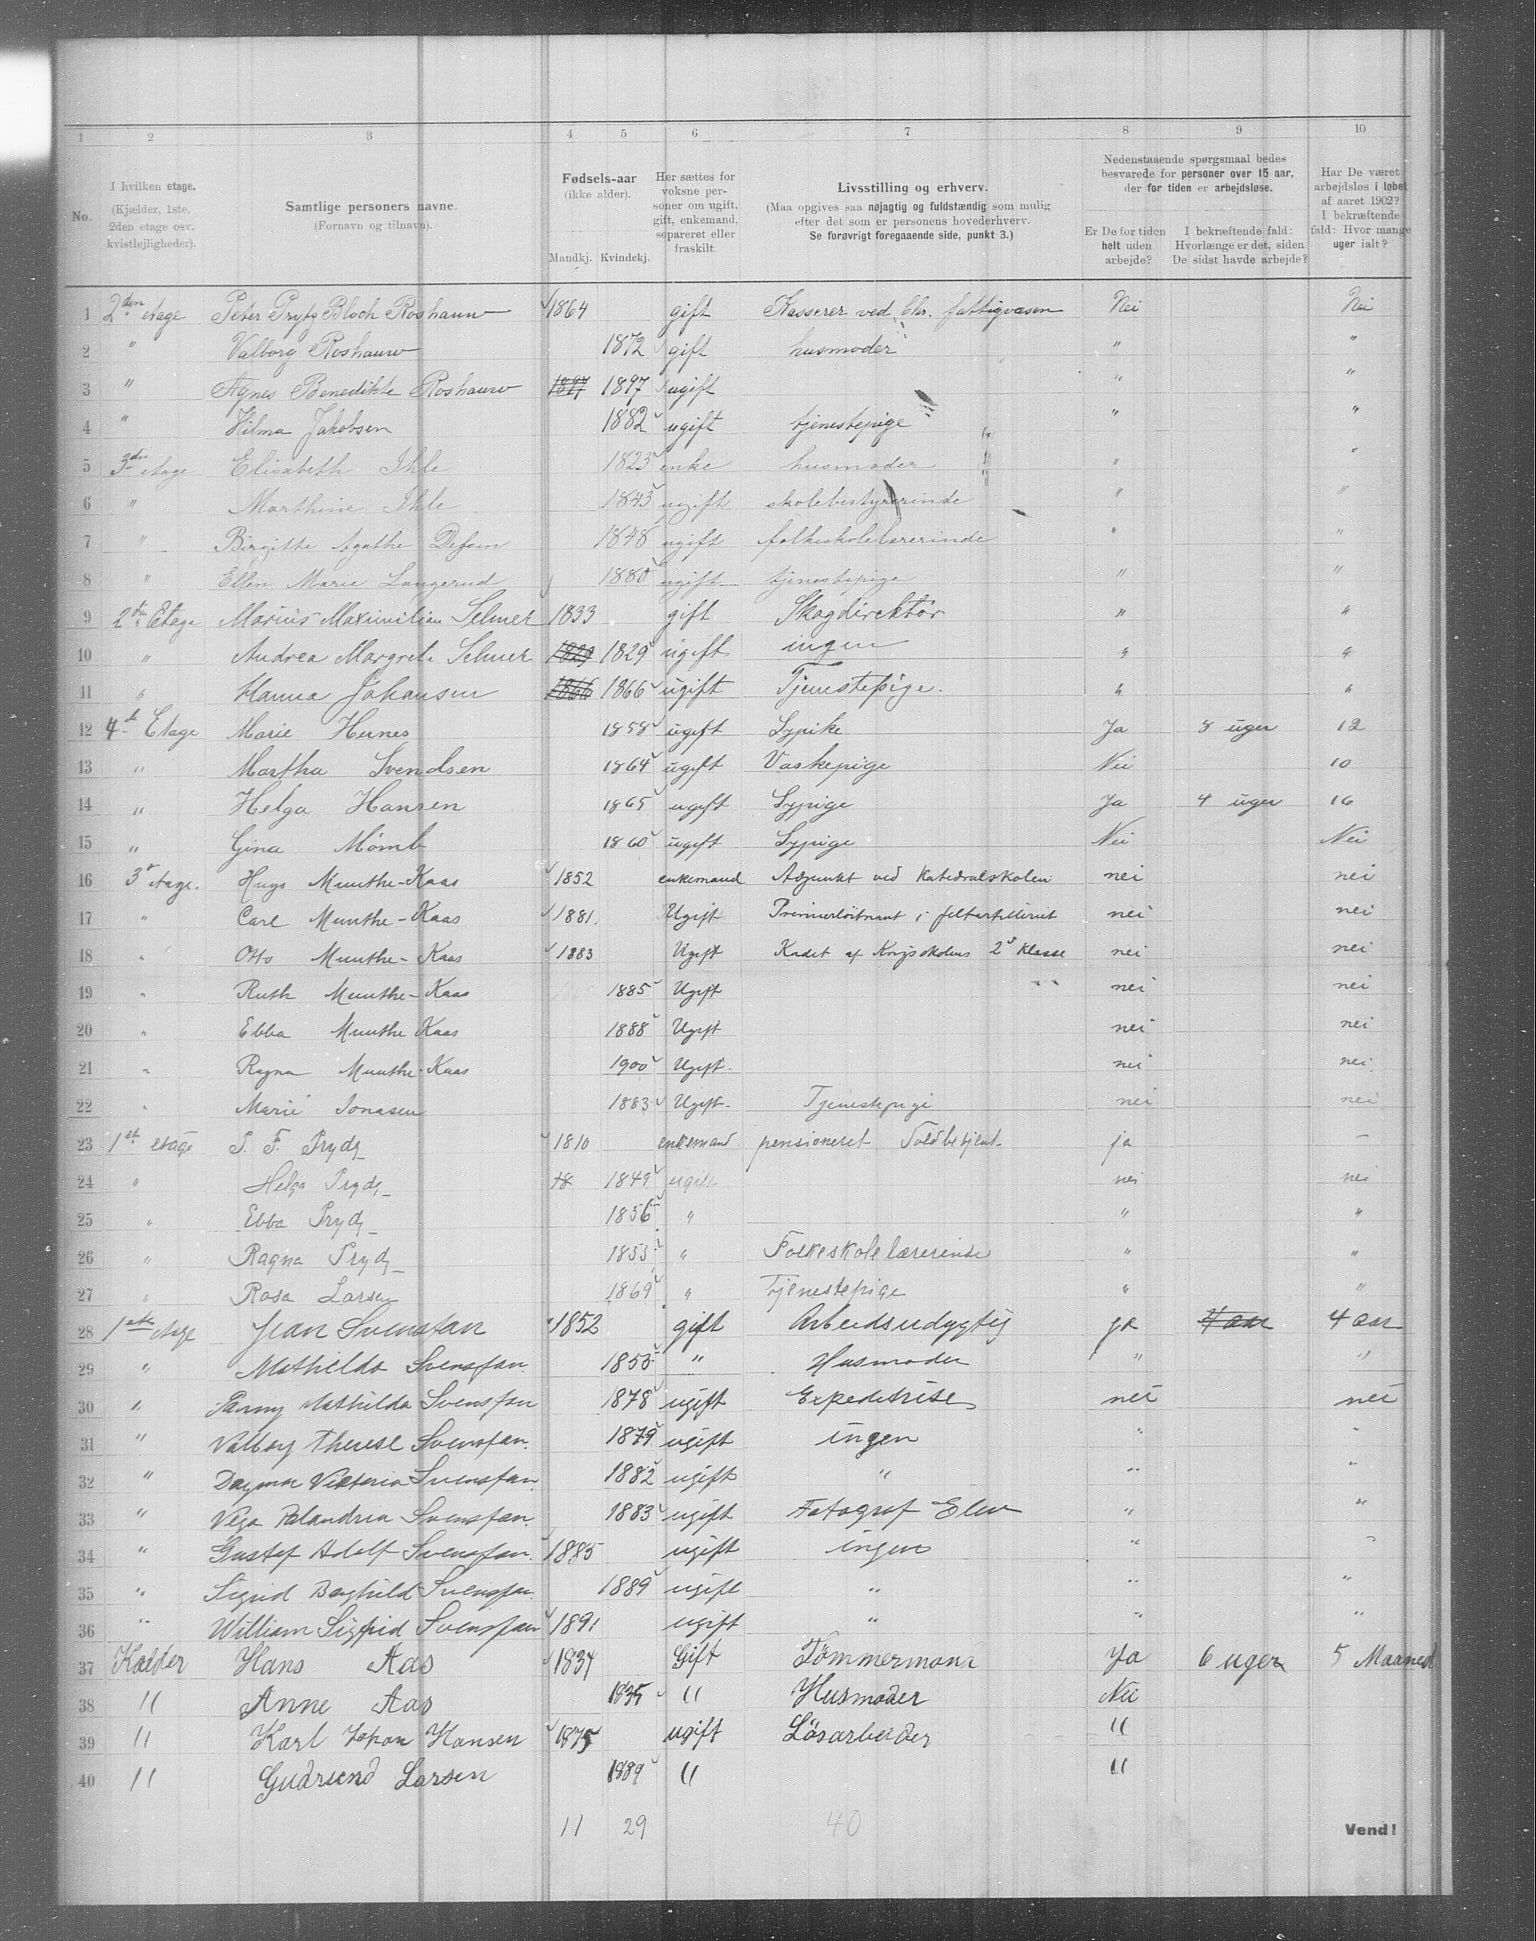 1 2 3 4 5 6 7 8 9 10
No.
I hvilken etage.
(Kjælder, 1ste.
2den etage osv.
kvistlejligheder).
Samtlige personers navne.
(Fornavn og tilnavn).
Fødsels-aar
(ikke alder).
Mandkj. Kvindekj.
Her sættes for
voksne per-
soner om ugift,
gift, enkemand,
separeret eller
fraskilt.
Livsstilling og erhverv.
(Maa opgives saa nøjagtig og fuldstændig som mulig
efter det som er personens hovederhverv.
Se forøvrigt foregaaende side, punkt 3.)
Nedenstaaende spørgsmaal bedes
besvarede for personer over 15 aar,
der for tiden er arbejdsløse.
Er De for tiden
helt uden
arbejde?
I bekræftende fald:
Hvorlænge er det, siden
De sidst havde arbejde?
Har De været
arbejdsløs i løbet
af aaret 1902?
I bekræftende
fald: Hvor mange
uger ialt?
1 2den etage Peter Pryty Bloch Roshauw 1864 gift Kasserer ved Chr. fattigvæsen Nei Nei
2 " Valborg Roshauw 1872 gift husmoder " "
3 " Agnes Benedikte Roshauw 1897 1897 ugift " "
4 " Hilma Jakobsen 1882 ugift tjenestepige " "
5 3die etage Elisabeth Ihle 1823 enke husmoder " "
6 " Marthine Ihle 1843 ugift skolebestyrerinde " "
7 " Birgitte Agathe 1848 ugift folkeskolelærerinde " "
8 " Ellen Marie Langerud 1880 ugift tjenestepige " "
9 2den Etage Marius Maximilian Selmer 1833 gift Skogdirektør " "
10 " Andrea Margrete Selmer 1829 1829 ugift ingen " "
11 " Hanna Johansen 1866 1866 ugift Tjenestepige. " "
12 4de Etage Marie Hernes 1858 ugift Sypike Ja 8 uger 12
13 " Martha Svendsen 1864 ugift Vaskepige Nei 10
14 " Helga Hansen 1865 ugift Sypige Ja 4 uger 16
15 " Gina 1860 ugift Sypige Nei Nei
16 3die etage. Hugo Munthe-Kaas 1852 enkemand Adjunkt ved Katedralskolen nei nei
17 " Carl Munthe-Kaas 1881. Ugift Premierløitnant i feltartilleriet nei nei
18 " Otto Munthe-Kaas 1883 Ugift Kadet af Krigsskolens 2den Klasse nei nei
19 " Ruth Munthe-Kaas 1885 Ugift nei nei
20 " Ebba Munthe Kaas 1888 Ugift nei nei
21 " Ragna Munthe-Kaas 1900 Ugift. nei nei
22 " Marie Jonasen 1883 Ugift. Tjenestepige nei nei
23 1ste etage P. F. Prydz 1810 enkemand pensioneret Toldbetjent ja –
24 " Helga Prydz 18 1849 ugift nei nei
25 " Ebba Prydz 1856 " " "
26 " Ragna Prydz 1853 " Folkeskolelærerinde " "
27 " Rosa Larsen 1869 " Tjenestepige " "
28 1ste etage Jean Svensson 1852 gift Arbeidsudygtig ja 4 aar 4 aar
29 " Mathilda Svensson. 1855 " Husmoder " "
30 " Fanny Mathilda Svensson 1878 ugift Expeditrise nei nei
31 " Valborg Therese Svensson. 1879 ugift ingen " "
32 " Dagmar Viktoria Svensson. 1882 ugift " " "
33 " Vega Svensson. 1883 ugift Fotograf Elev " "
34 " Gustaf Adolf Svensson. 1885 ugift ingen " "
35 " Sigrid Borghild Svensson. 1889 ugift " " "
36 " William Sigfrid Svensson 1891 ugift " " "
37 Kælder Hans Aas 1834 Gift Tømmermann Ja 6 uger 5 Maaned
38 " Anne Aas 1835 " Husmoder Nei
39 " Karl Johan Hansen 1875 ugift Løsarbeider "
40 " Gudrund Larsen 1889 " "
11 29 40
Vend!